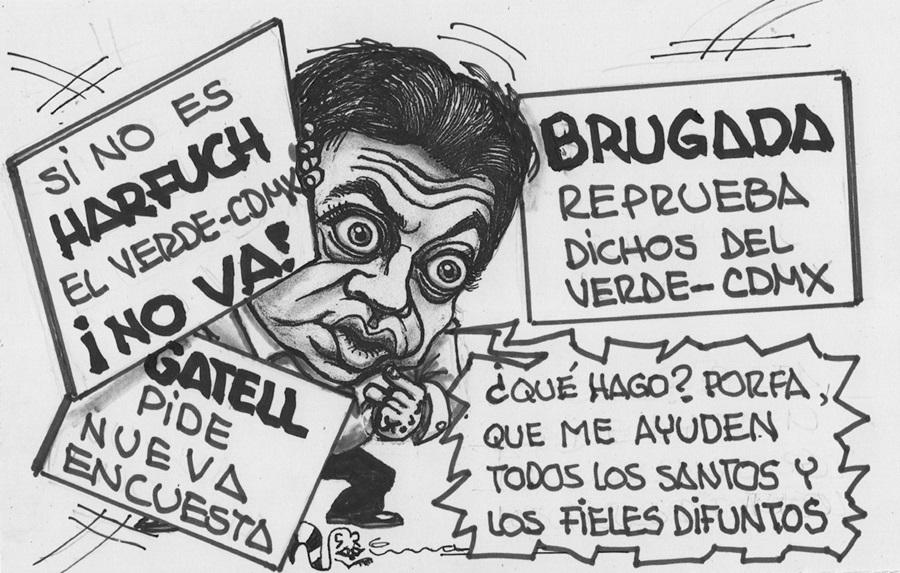 SI NO ES
HARFUCH
EL VERDE-CDMX
¡NO VA!
BRUGADA
REPRUEBA
DICHOS DEL
VERDE-CDMX
GATELL
PIDE
NUEVA
ENCUESTA
¿QUÉ HAGO? PORFA,
QUE ME AYUDEN
TODOS LOS SANTOS Y
LOS FIELES DIFUNTOS